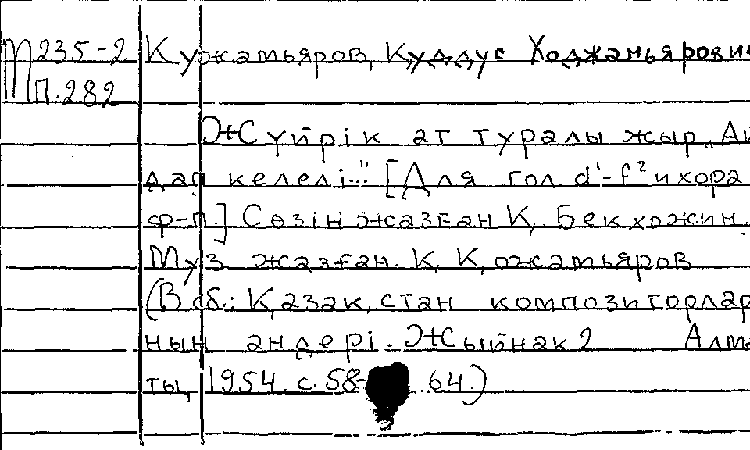 М235-2 Кужамьяров, Куддус Ходжамьярович
П.282
Жүйрік ат туралы жыр „Ай
дап келелі..." [Для гол. d'-f² и хора
ф-п.] Сөзін жазған Қ. Бекхожин.
Муз. жазған. Қ. Қожамьяров
(В сб.: Қазақстан композиторлар
ның әндері. Жыйнақ 2 Алма
ты, 1954. с. 58- 64.)